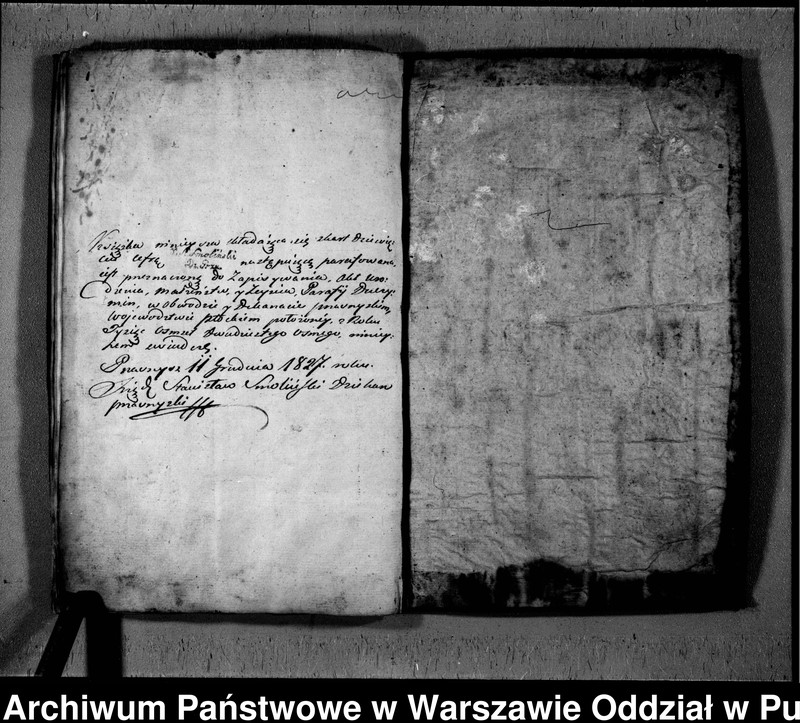 Książka niniejsza składająca się z kart Dziewięciu
cyfrą X. Smoliński następującą parafowana,
Dz. Prz.
iest przeznaczoną do Zapisywania, Akt Uro-
dzenia, małżeństw, y Zejścia, Parafii Dużey-
min, w obwodzie y Dekanacie pzasnyskim,
Województwie płockiem położoney, z Roku
Tysiąc Osmset Dwudziestego Osmego, niniey-
szem zaświadczę.
Prasnysz 11 Grudnia 1827. roku.
Xiądz Stanisław Smoliński Dziekan
prasnyski
Archiwum Państwowe w Warszawie Oddział w Pu